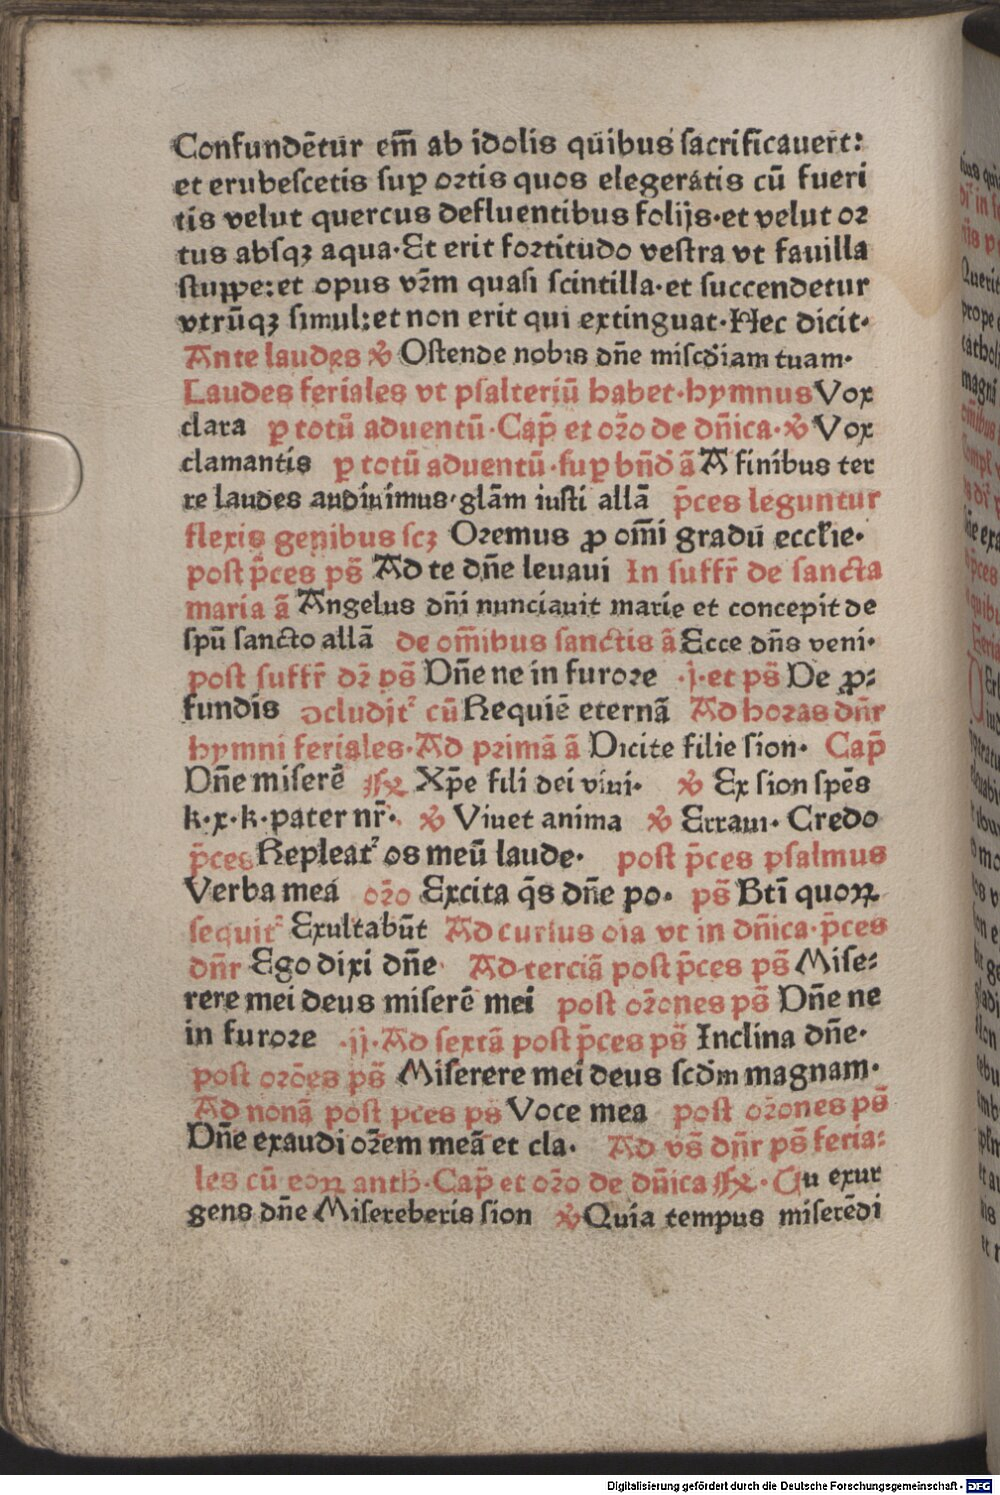 Confundẽtur em̃ ab idolis quibus ſacrificauert:
et erubeſcetis ſuꝑ oꝛtis quos elegeratis cũ fueri
tis velut quercus defluentibus folijs·et velut oꝛ
tus abſqꝫ aqua·Et erit foꝛtitudo veſtra vt fauilla
ſtuppe:et opus vr̃m quaſi ſcintilla·et ſuccendetur
vtrũqꝫ ſimul:et non erit qui extinguat·Hec dicit·
Ante laudes ℣ Oſtende nobis dñe miſcd̃iam tuam·
Laudes feriales vt pſalteriũ habet·hymnus Vox
clara ꝑ totũ aduentũ·Cap̃ et or̃o de dñica·℣ Vox
clamantis ꝑ totũ aduentũ·ſuꝑ bñd̃ ã A finibus ter
re laudes audiuimus·glãm iuſti allã p̃ces leguntur
flexis genibus ſcꝫ Oꝛemus ꝓ om̃i gradũ eccl̃ie·
poſt p̃ces ps̃ Ad te dñe leuaui In ſuffr̃ de ſancta
maria ã Angelus dñi nunciauit marie et concepit de
ſpũ ſancto allã de om̃ibus ſanctis ã Ecce dñs veni·
poſt ſuffr̃ dr̃ ps̃ Dñe ne in furoꝛe ·j·et ps̃ De ꝓ⸗
fundis ↄcludit᷑ cũ Requiẽ eternã Ad hoꝛas dñr
hymni feriales·Ad pꝛimã ã Dicite filie ſion· Cap̃
Dñe miſerẽ ℟ Xp̃e fili dei viui· ℣ Ex ſion ſpẽs
k·x·k·pater nr̃· ℣ Viuet anima ℣ Erraui· Credo
p̃ces Repleat᷑ os meũ laude· poſt p̃ces pſalmus
Verba mea or̃o Excita q̃s dñe po· ps̃ Btĩ quoꝝ
ſequit᷑ Exultabũt Ad curſus oĩa vt in dñica·p̃ces
dñr Ego dixi dñe Ad terciã poſt p̃ces ps̃ Miſe⸗
rere mei deus miſerẽ mei poſt or̃ones ps̃ Dñe ne
in furoꝛe ·ij·Ad ſextã poſt p̃ces ps̃ Inclina dñe·
poſt oꝛões ps̃ Miſerere mei deus ſcd̃m magnam·
Ad nonã poſt p̃ces ps̃ Voce mea poſt or̃ones ps̃
Dñe exaudi or̃em meã et cla· Ad vs̃ dñr ps̃ feria⸗
les cũ eoꝝ anth̃·Cap̃ et or̃o de dñica ℟·Tu exur
gens dñe Miſereberis ſion ℣ Quia tempus miſerẽdi
Digitalisierung gefördert durch die Deutsche Forschungsgemeinschaft - DFG